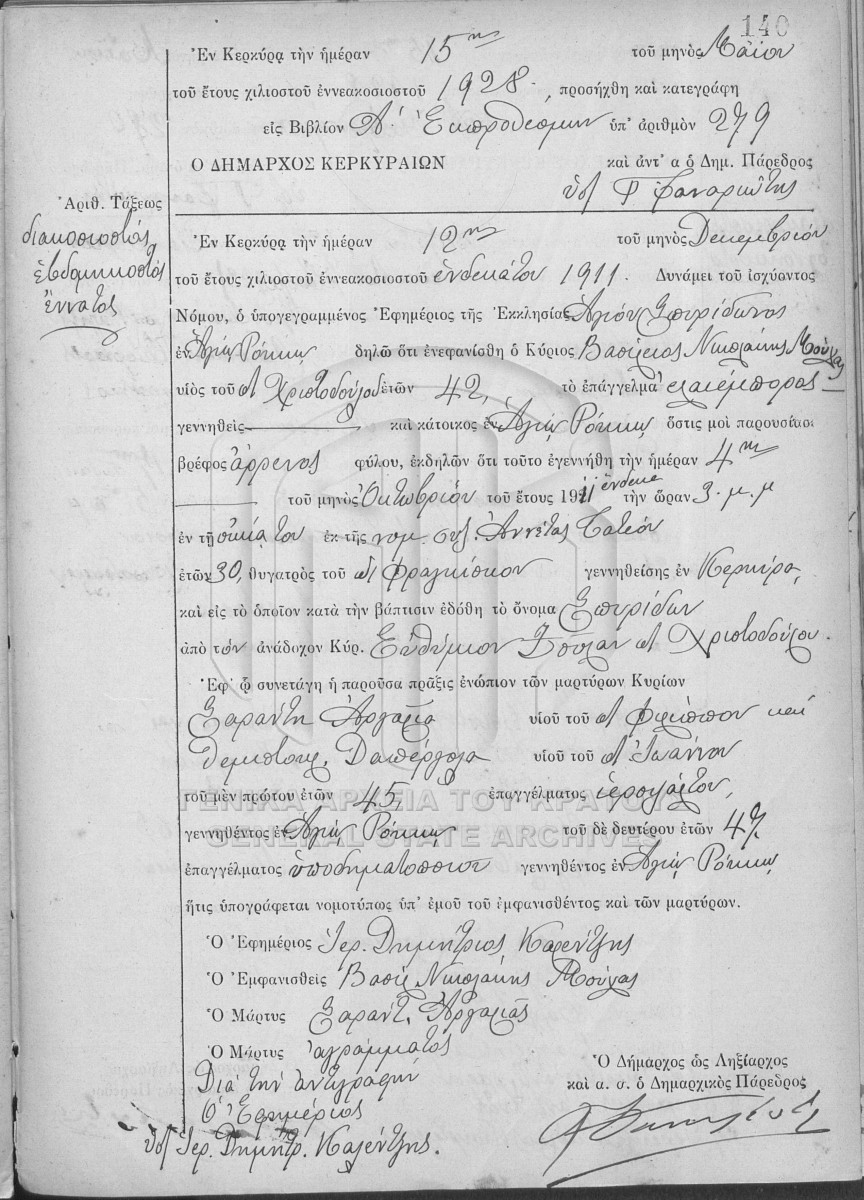 140
Ἐν Κερκύρᾳ τὴν ἡμέραν 15ην τοῦ μηνὸς Μαΐου
τοῦ ἔτους χιλιοστοῦ ἐννεακοσιοστοῦ 1928, προσήχθη καὶ κατεγράφη
εἰς Βιβλίον Α' Ἐκπροθέσμων ὑπ' ἀριθμὸν 279
Ο ΔΗΜΑΡΧΟΣ ΚΕΡΚΥΡΑΙΩΝ καὶ ἀντ' α ὁ Δημ. Πάρεδρος
Ἀριθ. Τάξεως
διακοσιοστὸς
ἑβδομηκοστὸς
ἔννατος
Ἐν Κερκύρᾳ τὴν ἡμέραν 12ην τοῦ μηνὸς Δεκεμβρίου
τοῦ ἔτους χιλιοστοῦ ἐννεακοσιοστοῦ ἑνδεκάτου 1911. Δυνάμει τοῦ ἰσχύοντος
Νόμου, ὁ ὑπογεγραμμένος Ἐφημέριος τῆς Ἐκκλησίας Ἁγίου Σπυρίδωνος
ἐν Ἁγίῳ Ρόκκῳ δηλῶ ὅτι ἐνεφανίσθη ὁ Κύριος Βασίλειος Νικολάκης Μούχας
υἱὸς τοῦ Χριστοδούλου ἐτῶν 42, τὸ ἐπάγγελμα ἐλαιέμπορος
γεννηθεὶς καὶ κάτοικος ἐν Ἁγίῳ Ρόκκῳ ὅστις μοὶ παρουσίασε
βρέφος ἄρρενος φύλου, ἐκδηλῶν ὅτι τοῦτο ἐγεννήθη τὴν ἡμέραν 4ην
τοῦ μηνὸς Ὀκτωβρίου τοῦ ἔτους 1911 ἕνδεκα τὴν ὥραν 3. μ.μ
ἐν τῇ οἰκίᾳ του ἐκ τῆς νομ. συζ. Ἀννέτας
ἐτῶν 30, θυγατρὸς τοῦ Φραγκίσκου γεννηθείσης ἐν Κερκύρᾳ,
καὶ εἰς τὸ ὁποῖον κατὰ τὴν βάπτισιν ἐδόθη τὸ ὄνομα Σπυρίδων
ἀπὸ τὸν ἀνάδοχον Κύρ. Εὐθύμιον Χριστοδούλου.
Ἐφ' ᾧ συνετάγη ἡ παροῦσα πρᾶξις ἐνώπιον τῶν μαρτύρων Κυρίων
Σαράντη υἱοῦ τοῦ Φιλίππου καὶ
υἱοῦ τοῦ Ἰωάννου
τοῦ μὲν πρώτου ἐτῶν 45, ἐπαγγέλματος ἱεροψάλτου,
γεννηθέντος ἐν Ἁγίῳ Ρόκκῳ τοῦ δὲ δευτέρου ἐτῶν 47,
ἐπαγγέλματος ὑποδηματοποιοῦ γεννηθέντος ἐν Ἁγίῳ Ρόκκῳ
ἥτις ὑπογράφεται νομοτύπως ὑπ' ἐμοῦ τοῦ ἐμφανισθέντος καὶ τῶν μαρτύρων.
Ὁ Ἐφημέριος Ἱερ. Δημήτριος Καλέντζης
Ὁ Ἐμφανισθεὶς Βασίλ Νικολάκης Μούχας
Ὁ Μάρτυς Σαράντ.
Ὁ Μάρτυς ἀγράμματος
Διὰ τὴν ἀντιγραφὴν
Ὁ Ἐφημέριος
ὑπ/ Ἱερ. Δημήτρ. Καλέντζης.
Ὁ Δήμαρχος ὡς Ληξίαρχος
καὶ α. σ. ὁ Δημαρχικὸς Πάρεδρος
ΓΕΝΙΚΑ ΑΡΧΕΙΑ ΤΟΥ ΚΡΑΤΟΥΣ
GENERAL STATE ARCHIVES